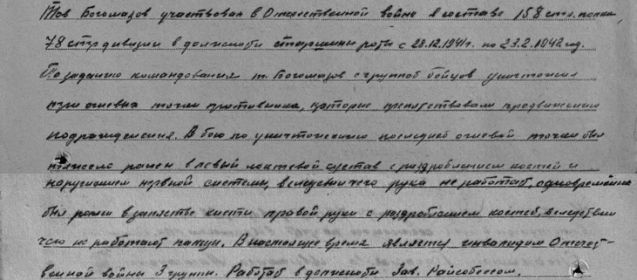 Тов Богомазов участвовал в Отечественной войне в составе 158 стр. полка,
78 стр дивизии в должности старшины роты с 28.12.1941г. по 23.2.1942 год.
По заданию командования т. Богомазов с группой бойцов уничтожил
три огневых точки противника, которые препятствовали продвижению
подразделения. В бою по уничтожению последней огневой точки был
тяжело ранен в левый локтевой сустав с раздроблением костей и
нарушением нервной системы, вследствие чего рука не работает, одновременно
был ранен в запястье кисти правой руки с раздроблением костей, вследствии
чего не работают пальцы. В настоящее время является инвалидом Отечест-
венной войны 3 группы. Работает в должности Зав. Райсобесом.